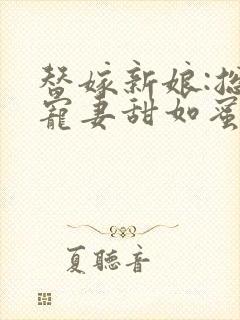 替嫁新娘:总
宠妻甜如蜜
夏聽音